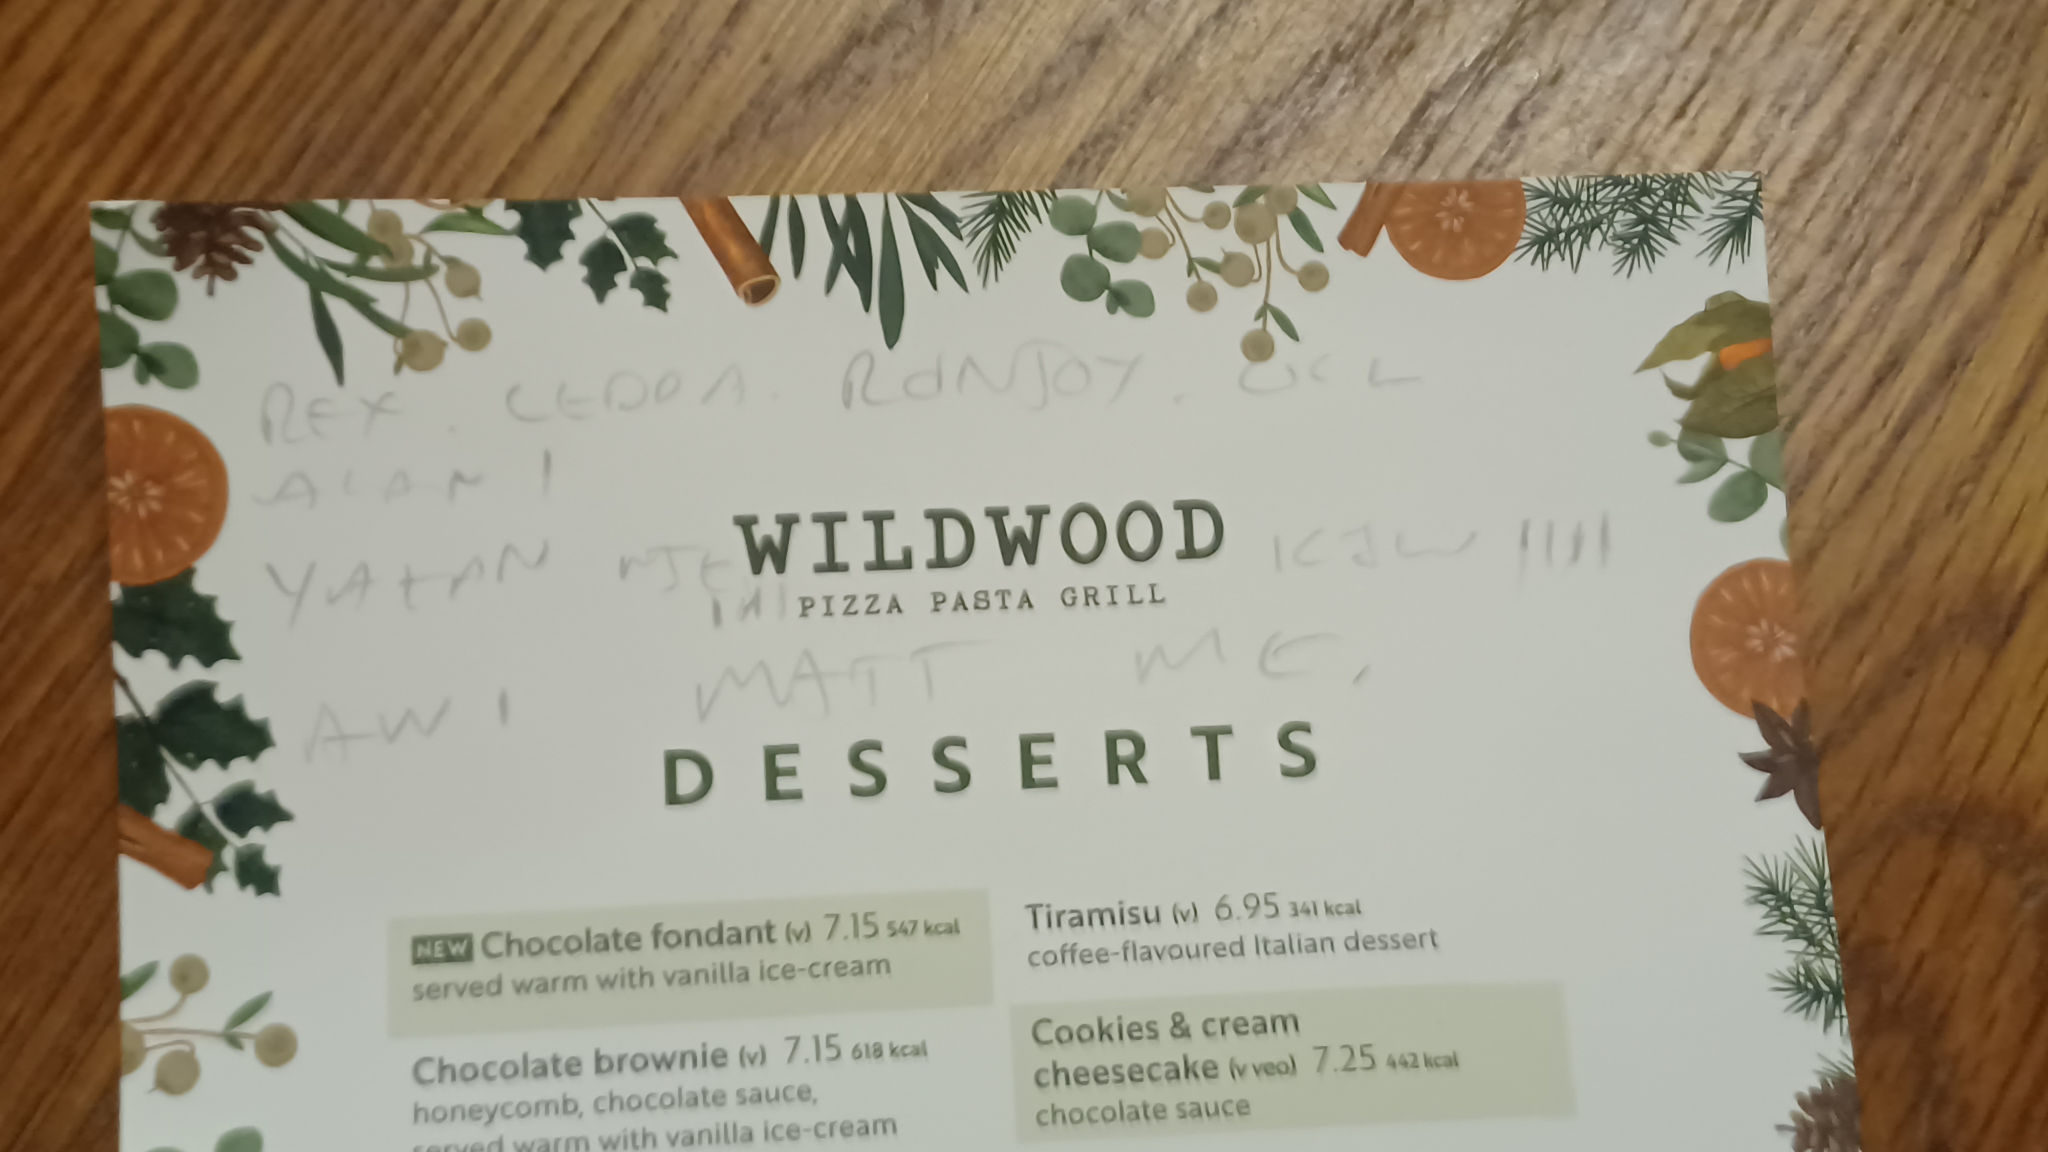 REX. CEDDA. RONJOY. OCL
ALAN |
YATAN KJW ||||
WILDWOOD
PIZZA PASTA GRILL
AW | MATT ME.
DESSERTS
NEW Chocolate fondant (v) 7.15 547 kcal
served warm with vanilla ice-cream
Chocolate brownie (v) 7.15 618 kcal
honeycomb, chocolate sauce,
served warm with vanilla ice-cream
Tiramisu (v) 6.95 341 kcal
coffee-flavoured Italian dessert
Cookies & cream
cheesecake (v veo) 7.25 442 kcal
chocolate sauce